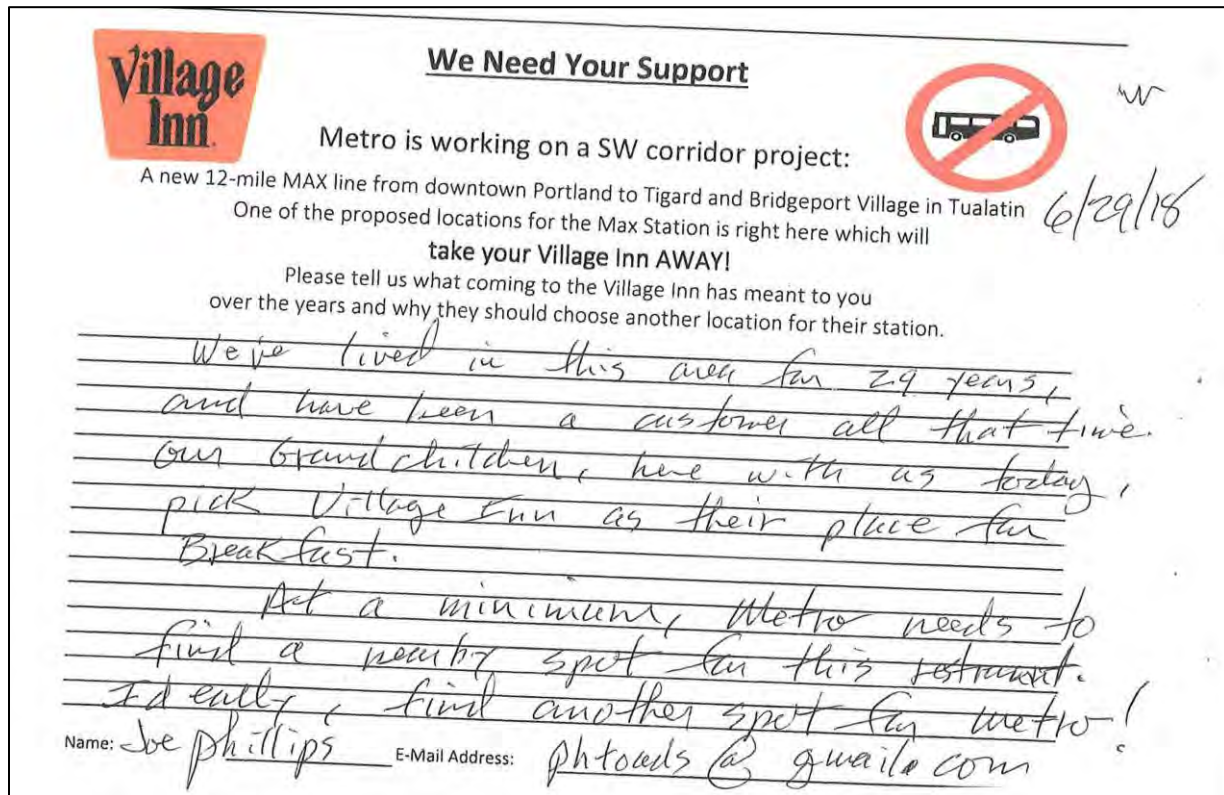 Village
Inn
We Need Your Support
Metro is working on a SW corridor project:
A new 12-mile MAX line from downtown Portland to Tigard and Bridgeport Village in Tualatin
6/29/18
One of the proposed locations for the Max Station is right here which will
take your Village Inn AWAY!
Please tell us what coming to the Village Inn has meant to you
over the years and why they should choose another location for their station.
We've lived in this area for 29 years,
and have been a customer all that time.
our Grandchildren, here with us today,
pick Village Inn as their place for
Breakfast.
At a minimum, Metro needs to
find a nearby spot for this restraunt.
Ideally, find another spot for Metro!
Name: Joe phillips E-Mail Address: phtoads@gmail.com